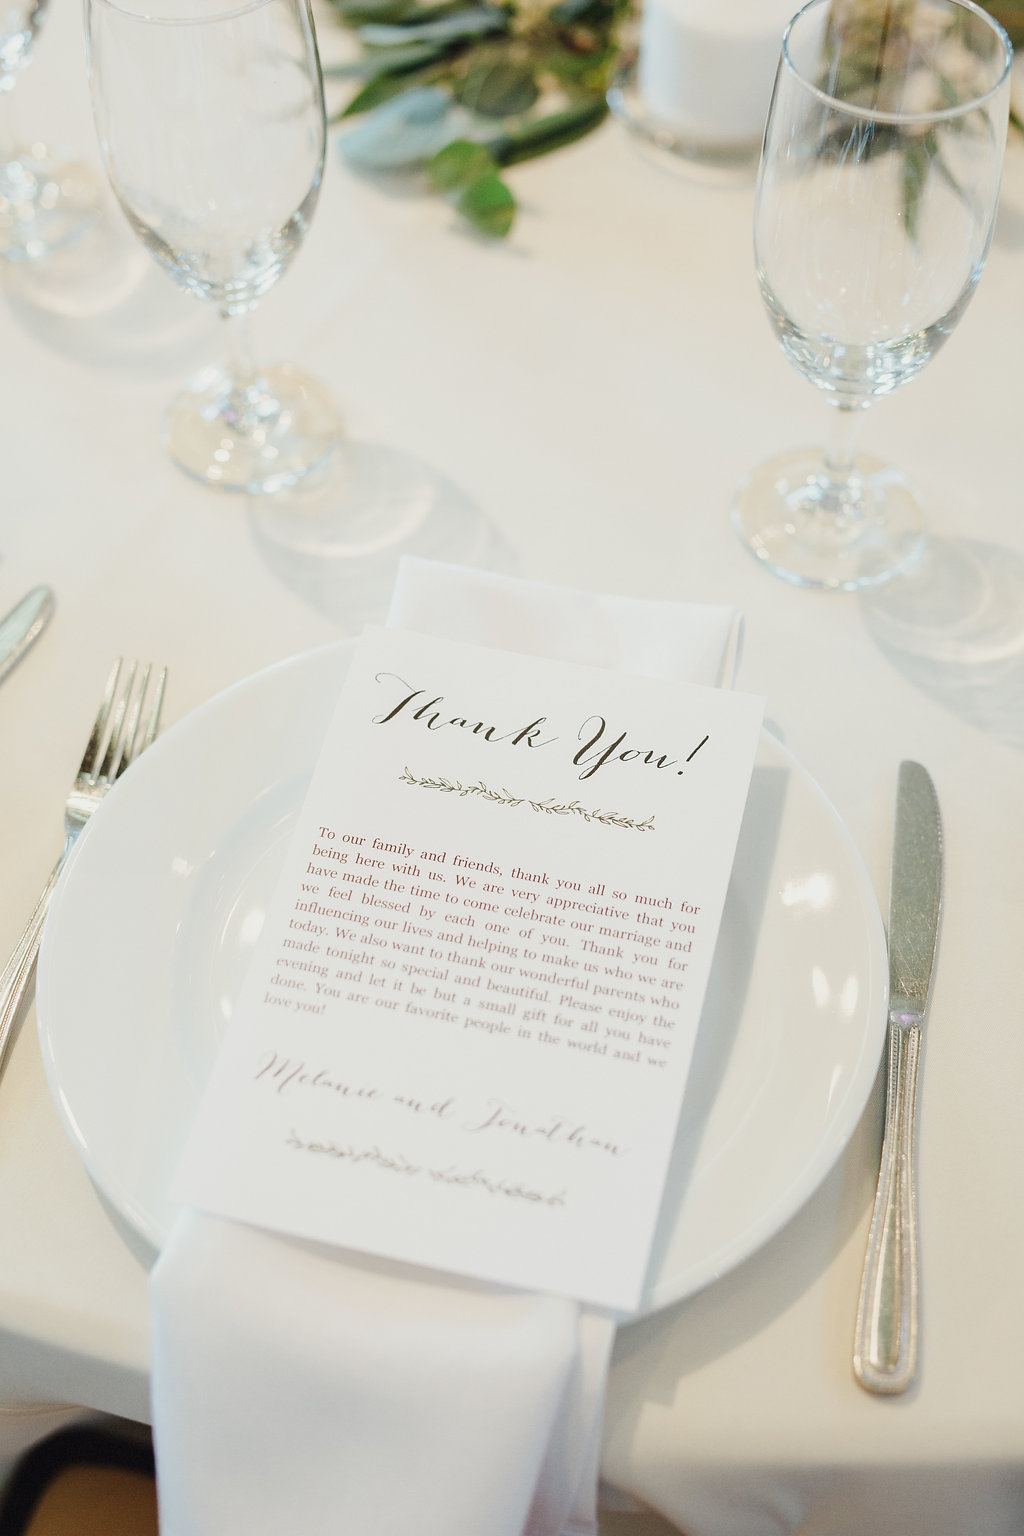 Thank You!
To our family and friends, thank you all so much for
being here with us. We are very appreciative that you
have made the time to come celebrate our marriage and
we feel blessed by each one of you. Thank you for
influencing our lives and helping to make us who we are
today. We also want to thank our wonderful parents who
made tonight so special and beautiful. Please enjoy the
evening and let it be but a small gift for all you have
done. You are our favorite people in the world and we
love you!
Melanie and Jonathan